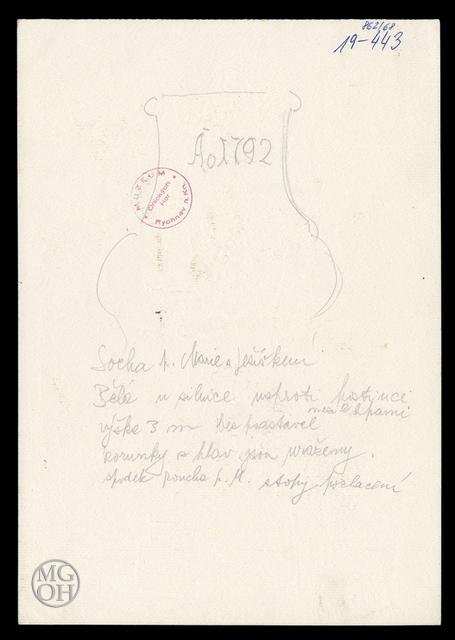 862/68
19-443
Ao 1792
MUZEUM
Orlických
Hor
Rychnov n. Kn.
Socha p. Marie s Ježíškem
Bělé u silnice naproti hostinci
mezi lipami
výška 3 m bez podstavce
korunky s hlav jsou uraženy.
spodek roucha p. M. stopy pozlacení
MG
OH